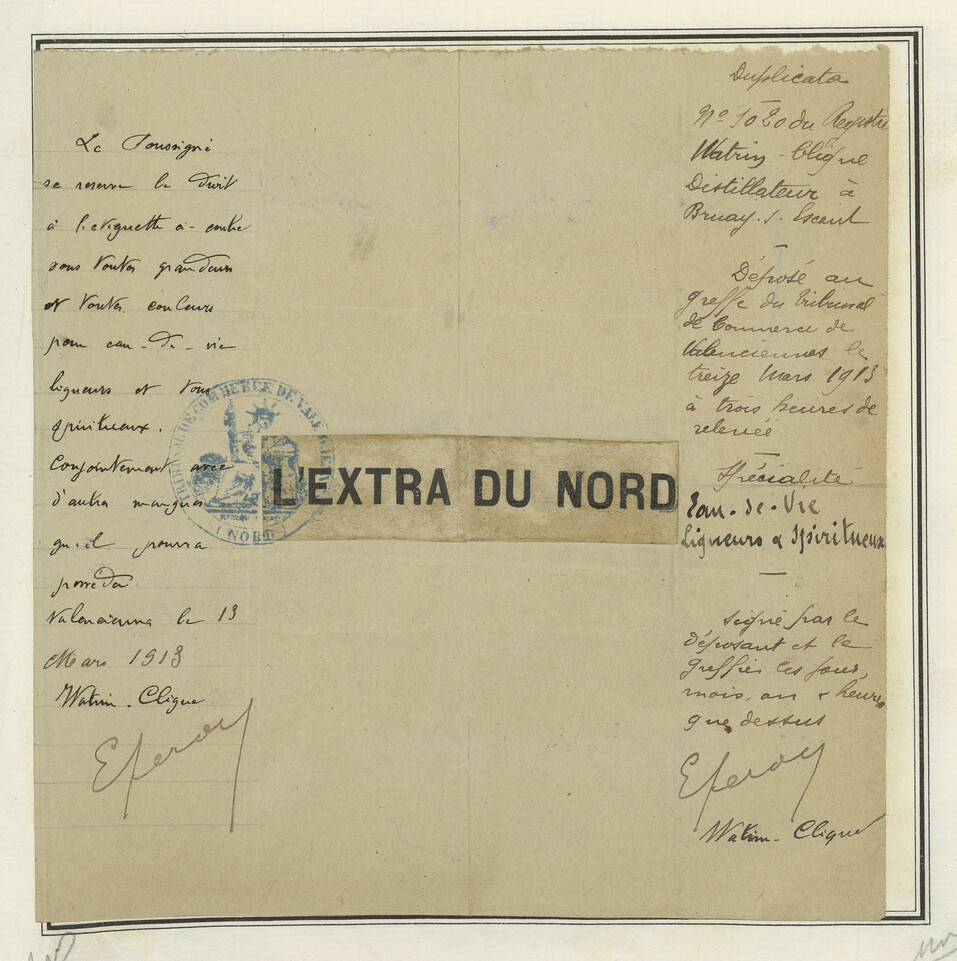 Le Soussigné
se reserve le droit
à l'etiquette ci-contre
sous toutes grandeurs
et toutes couleurs
pour eau-de-vie
liqueurs et tous
spiritueux.
Conjointement avec
d'autres marques
qu'il pourra
posseder
Valenciennes le 13
Mars 1913
Watrin-Clique
TRIBUNAL DE COMMERCE DE VALENCIENNES
(NORD)
L'EXTRA DU NORD
Duplicata
N° 1020 du Registre
Watrin-Clique
Distillateur à
Bruay. s. Escaut
Déposé au
greffe du Tribunal
de Commerce de
Valenciennes le
treize Mars 1913
à trois heures de
relevée
Spécialité
Eau-de-Vie
Liqueurs & Spiritueux
Signé par le
déposant et le
greffier les jour,
mois, an & heures
que dessus
Watrin-Clique